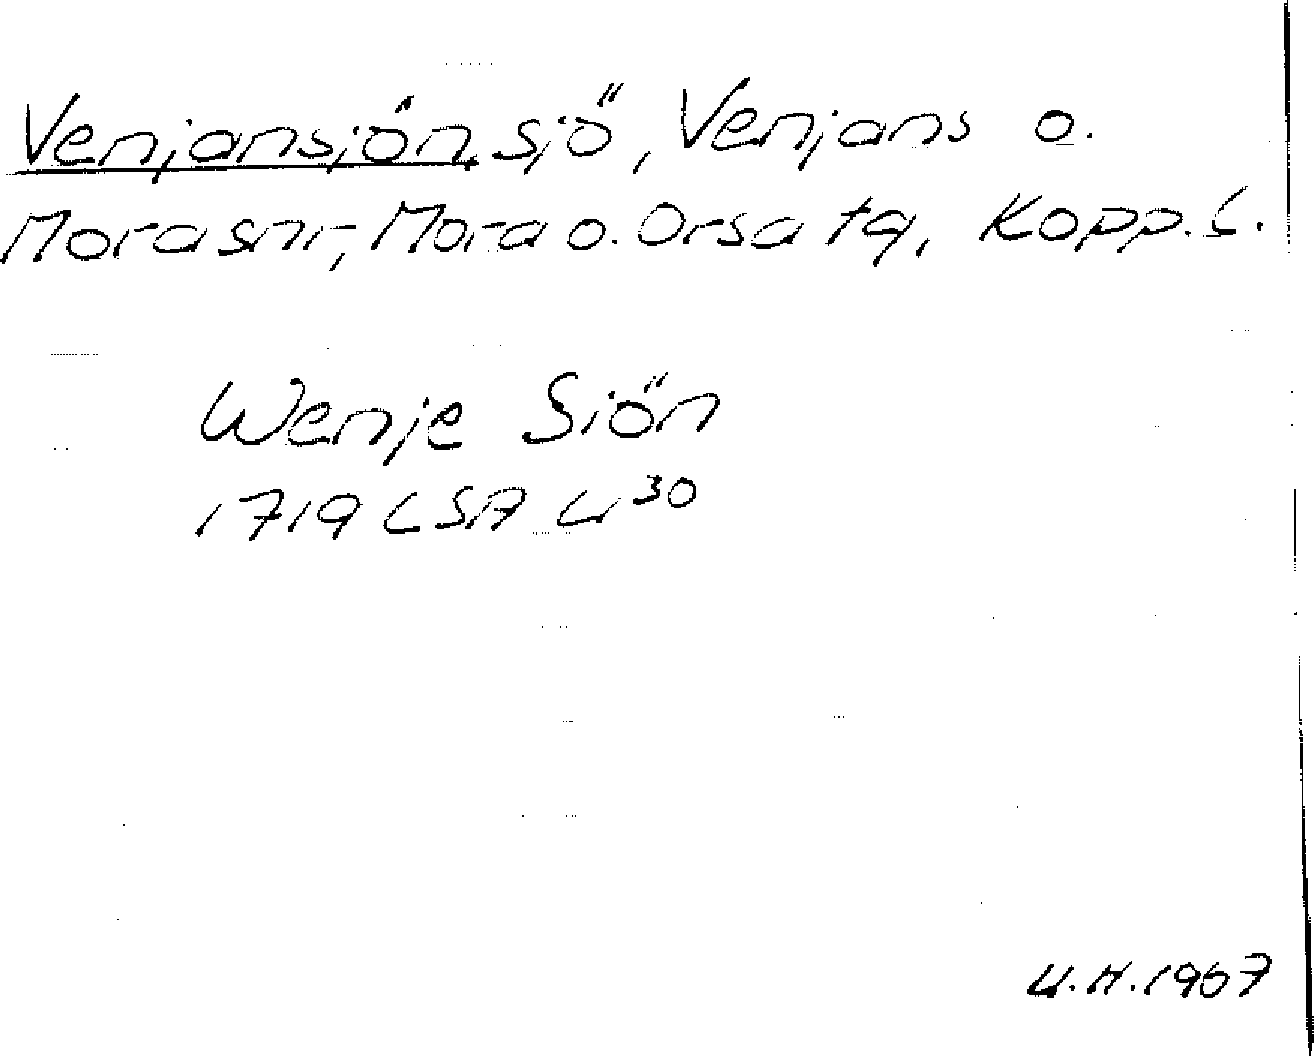 Venjansjön, sjö, Venjans o.
Mora snr, Mora o. Orsa tg, Kopp. L.
Wenje Siön
1719 LSA U³⁰
U.H. 1967